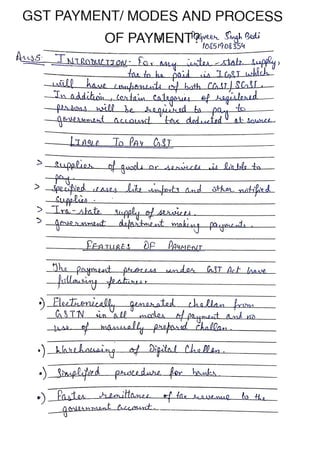 GST PAYMENT/ MODES AND PROCESS
OF PAYMENT
Singh Bedi
Ans5 INTRODUCTION - For any inter-state supply,
tax to be paid is IGST which
will have components of both CGST/SGST.
In addition, certain categories of registered
persons will be required to pay to
government account tax deducted at source
LIABLE TO PAY GST
> supplier of goods or services is liable to
pay.
> specified cases like imports and other notified
supplies.
> Intra-state supply of services.
> government department making payments.
FEATURES OF PAYMENT
The payment process under GST Act have
following features:
•) Electronically generated challan from
GSTN in all modes of payment and no
use of manually prepared challan.
•) Warehousing of Digital Challan.
•) Simplified procedure for banks.
•) Faster remittance of tax revenue to the
government account.